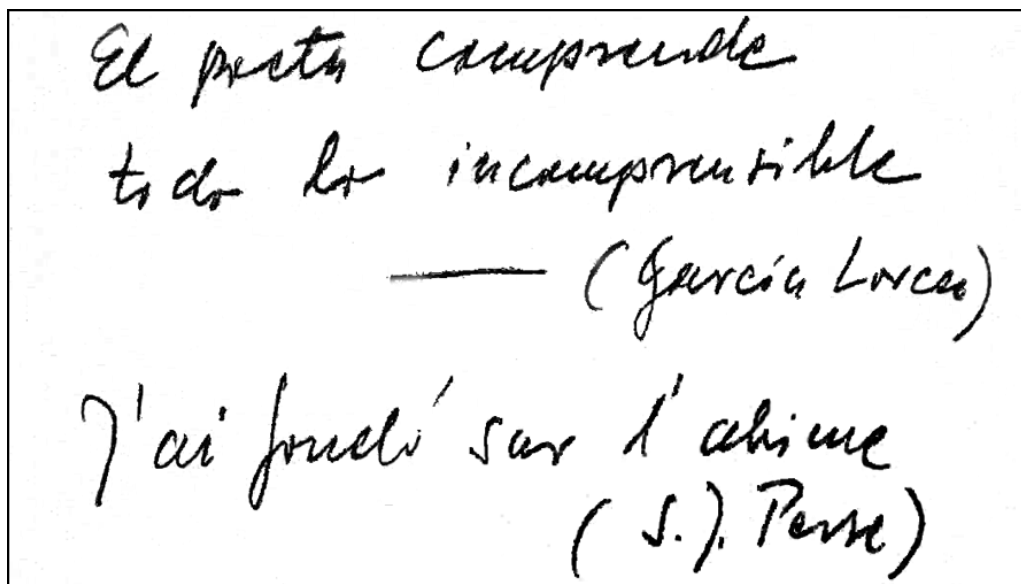 El poeta comprende
todo lo incomprensible
— (García Lorca)
J'ai fondé sur l'abime
(S.J. Perse)